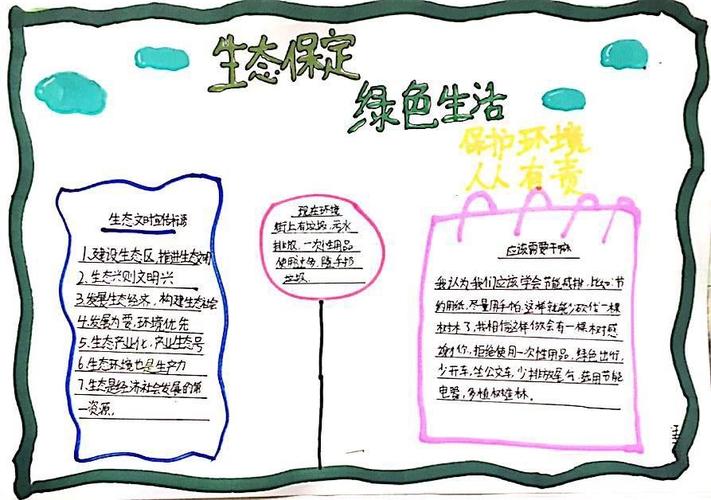 生态保定
绿色生活
保护环境
人人有责
生态文明宣传标语
1.建设生态区，推进生态文明
2.生态兴则文明兴
3.发展生态经济，构建生态社会
4.发展为要，环境优先
5.生态产业化，产业生态
6.生态环境也是生产力
7.生态是经济社会发展的第
一资源。
现在环境
街上有垃圾，污水
排放，一次性用品
使用
垃圾
应该需要干嘛
我认为我们应该学会节能减排，比如：节
约用纸，尽量用手帕，这样就能少砍伐一棵
树木了，我相信这样做会有一棵树感
谢你，拒绝使用一次性用品，绿色出行，
少开车，坐公交车，少排放尾气，使用节能
电器，多植树造林。